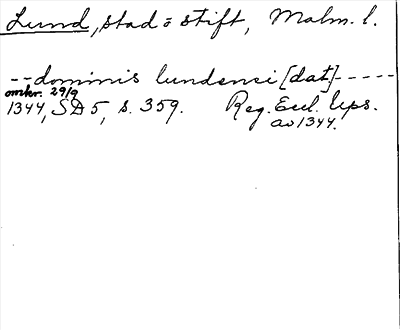 Lund, stad o stift, Malm. l.
--dominis lundensi [dat]-----
omkr. 29/9
1344, SD 5, s. 359. Reg. Eccl. Ups.
av 1344.